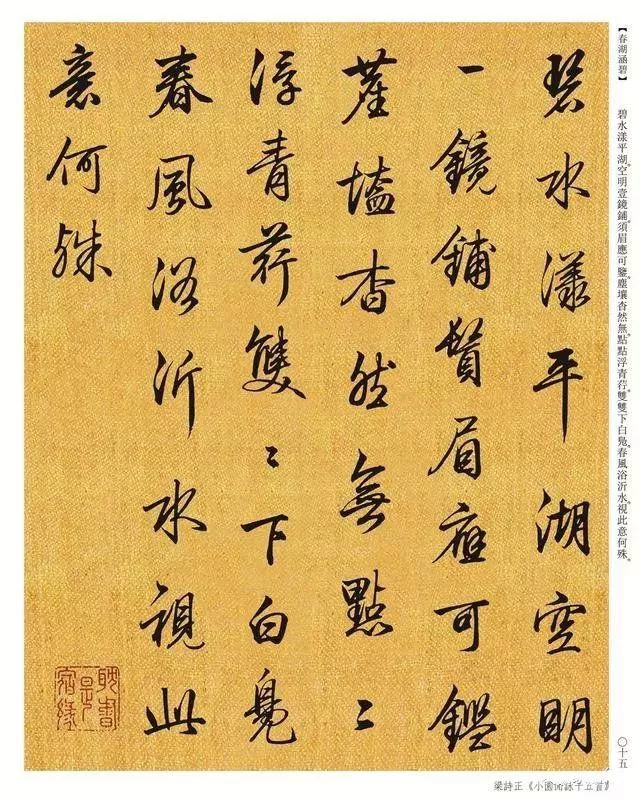 碧水漾平湖空明
一鏡鋪鬚眉應可鑑
塵壒杳然無點〻
浮青荇雙〻下白鳧
春風浴沂水視此
意何殊
耽書是宿緣
【春湖涵碧】
碧水漾平湖。空明壹鏡鋪。須眉應可鑒。塵壤杳然無。點點浮青荇。雙雙下白鳧。春風浴沂水。視此意何殊。
〇十五
梁詩正《小園